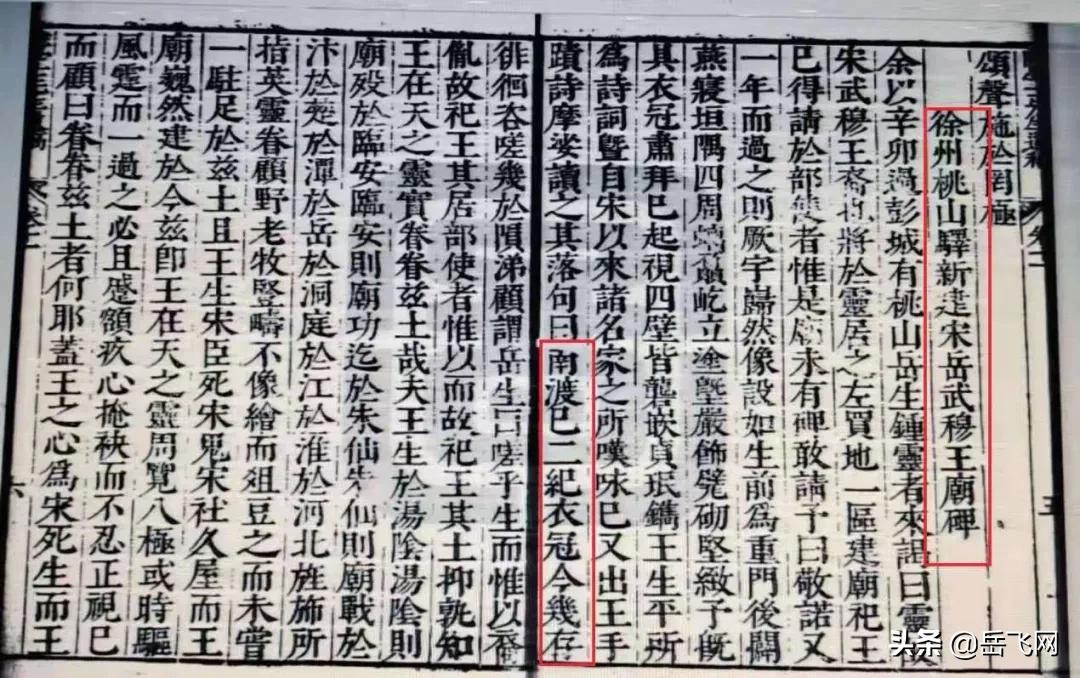 頌聲施於罔極
徐州桃山驛新建宋岳武穆王廟碑
余以辛卯過彭城有桃山岳生鍾靈者來謁曰靈
宋武穆王裔也將於靈居之左買地一區建廟祀王
已得請於部使者惟是廟未有碑敢請予曰敬諾又
一年而過之則厥宇巋然像設如生前為重門後闢
燕寢垣隅四周屹立塗墍嚴飾甓砌堅緻予既
具衣冠肅拜已起視四壁皆龔嵌貞珉鐫王生平所
為詩詞暨自宋以來諸名家之所嘆咏已又出王手
蹟詩摩娑讀之其落句曰南渡已二紀衣冠今幾存
五
徘徊咨嗟幾於隕涕顧謂岳生曰嗟乎生而惟以裔
胤故祀王其居部使者惟以而故祀王其土抑孰知
王在天之靈實眷眷兹土哉夫王生於湯陰湯陰則
廟歿於臨安臨安則廟功迄於朱仙朱仙則廟戰於
汴於楚於潭於岳於洞庭於江於淮於河北旌斾所
指英靈眷顧野老牧豎疇不像繪而俎豆之而未嘗
一駐足於兹土且王生宋臣死宋鬼宋社久屋而王
廟巍然建於今兹卽王在天之靈周覽八極或時驅
風霆而一過之必且蹙額疚心掩袂而不忍正視已
而顧曰眷眷兹土者何耶蓋王之心為宋死生而王
六
头条 @岳飞网